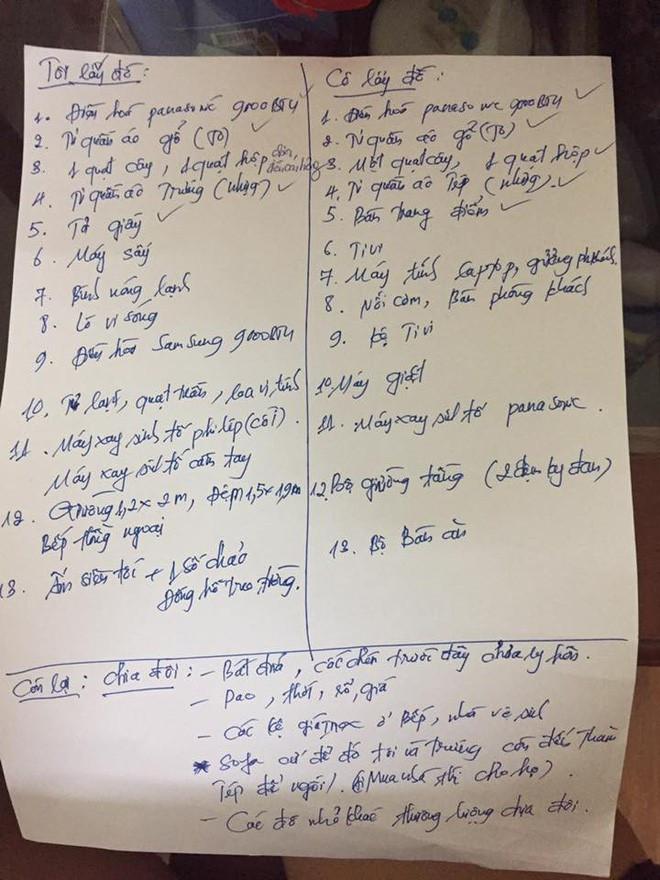 Tôi lấy đồ:
1. Điều hoà panasonic 9000BTU
2. Tủ quần áo gỗ (To)
3. 1 quạt cây, 1 quạt hộp
4. Tủ quần áo Trường (nhựa)
5. Tủ giày
6. Máy sấy
7. Bình nóng lạnh
8. Lò vi sóng
9. Điều hoà Samsung 9000BTU
10. Tủ lạnh, quạt trần, loa vi tính
11. Máy xay sinh tố philip (cối).
Máy xay sinh tố cầm tay
12. Giường 1,2 x 2 m, Đệm 1,5 x 1,9m
Bếp hồng ngoại
13. Ấm siêu tốc + 1 số chảo
Đồng hồ treo tường.
Cô lấy đồ:
1. Điều hoà panasonic 9000BTU
2. Tủ quần áo gỗ (To)
3. Một quạt cây, 1 quạt hộp
4. Tủ quần áo Tép (nhựa).
5. Bàn trang điểm
6. Tivi
7. Máy tính laptop, giường ph.khách.
8. Nồi cơm, Bàn phòng khách
9. Kệ Tivi
10. Máy giặt
11. Máy xay sinh tố panasonic.
12. Bộ giường tầng (2 đệm
13. Bộ Bàn ăn
Còn lại: chia đôi: - Bát đũa, cốc chén trước đây chưa ly hôn.
- Dao, thớt, rổ, giá
- Các kệ giá ở Bếp, nhà vệ sinh
* Sofa cứ để đó tôi và Trường còn đến thăm
Tép để ngồi. (Mua nhà thì cho họ).
- Các đồ nhỏ khác thương lượng chia đôi.